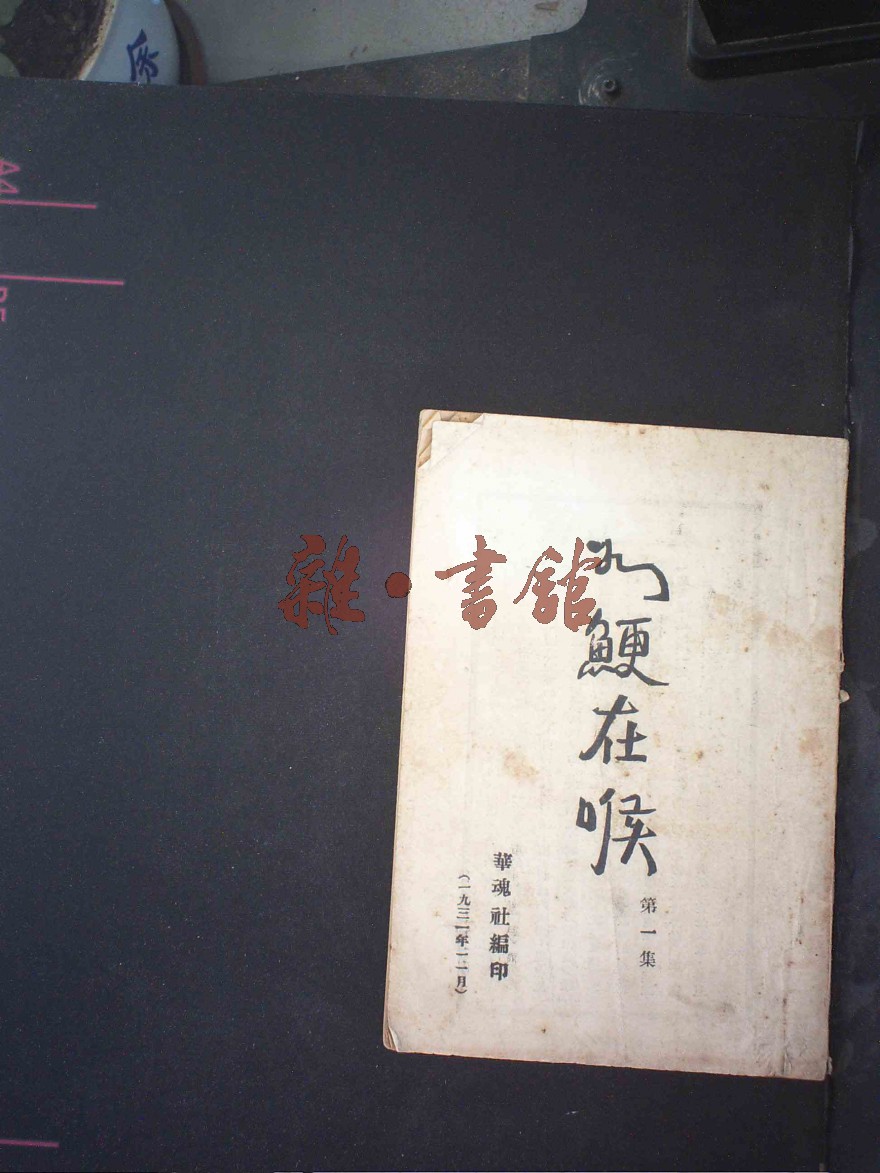 A4
雜·書館
如鯁在喉
第一集
華魂社編印
(一九三一年一一月)